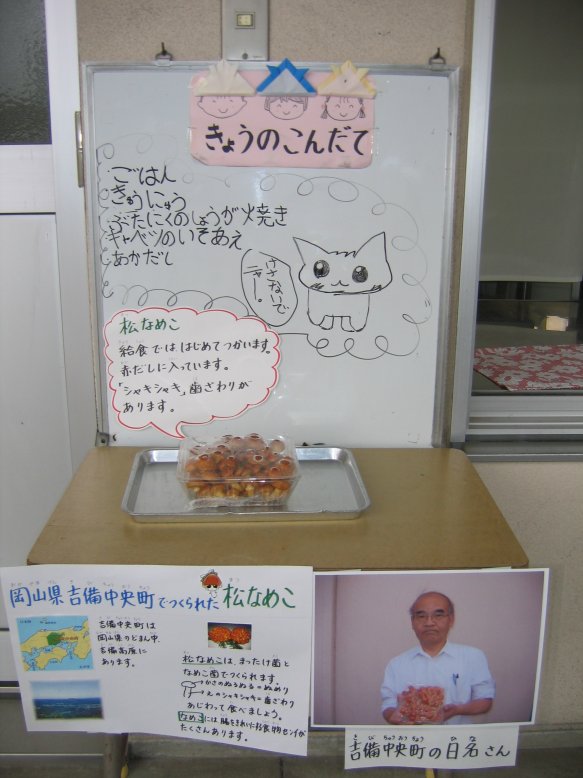 きょうのこんだて
ごはん
ぎゅうにゅう
ぶたにくのしょうが焼き
キャベツのいそあえ
あかだし
けさないで
ニャー。
松なめこ
給食でははじめてつかいます。
赤だしに入っています。
「シャキシャキ」歯ざわりが
あります。
岡山県吉備中央町でつくられた松なめこ
吉備中央町は
岡山県のどまん中、
吉備高原に
あります。
松なめこは、まったけ菌と
なめこ菌でつくられます。
かさのぬるぬる=ぬめり
えのシャキシャキ=歯ざわり
あじわって食べましょう。
なめこには腸をきれいにする食物センイが
たくさんあります。
吉備中央町の日名さん
きびちゅうおうちょう ひな